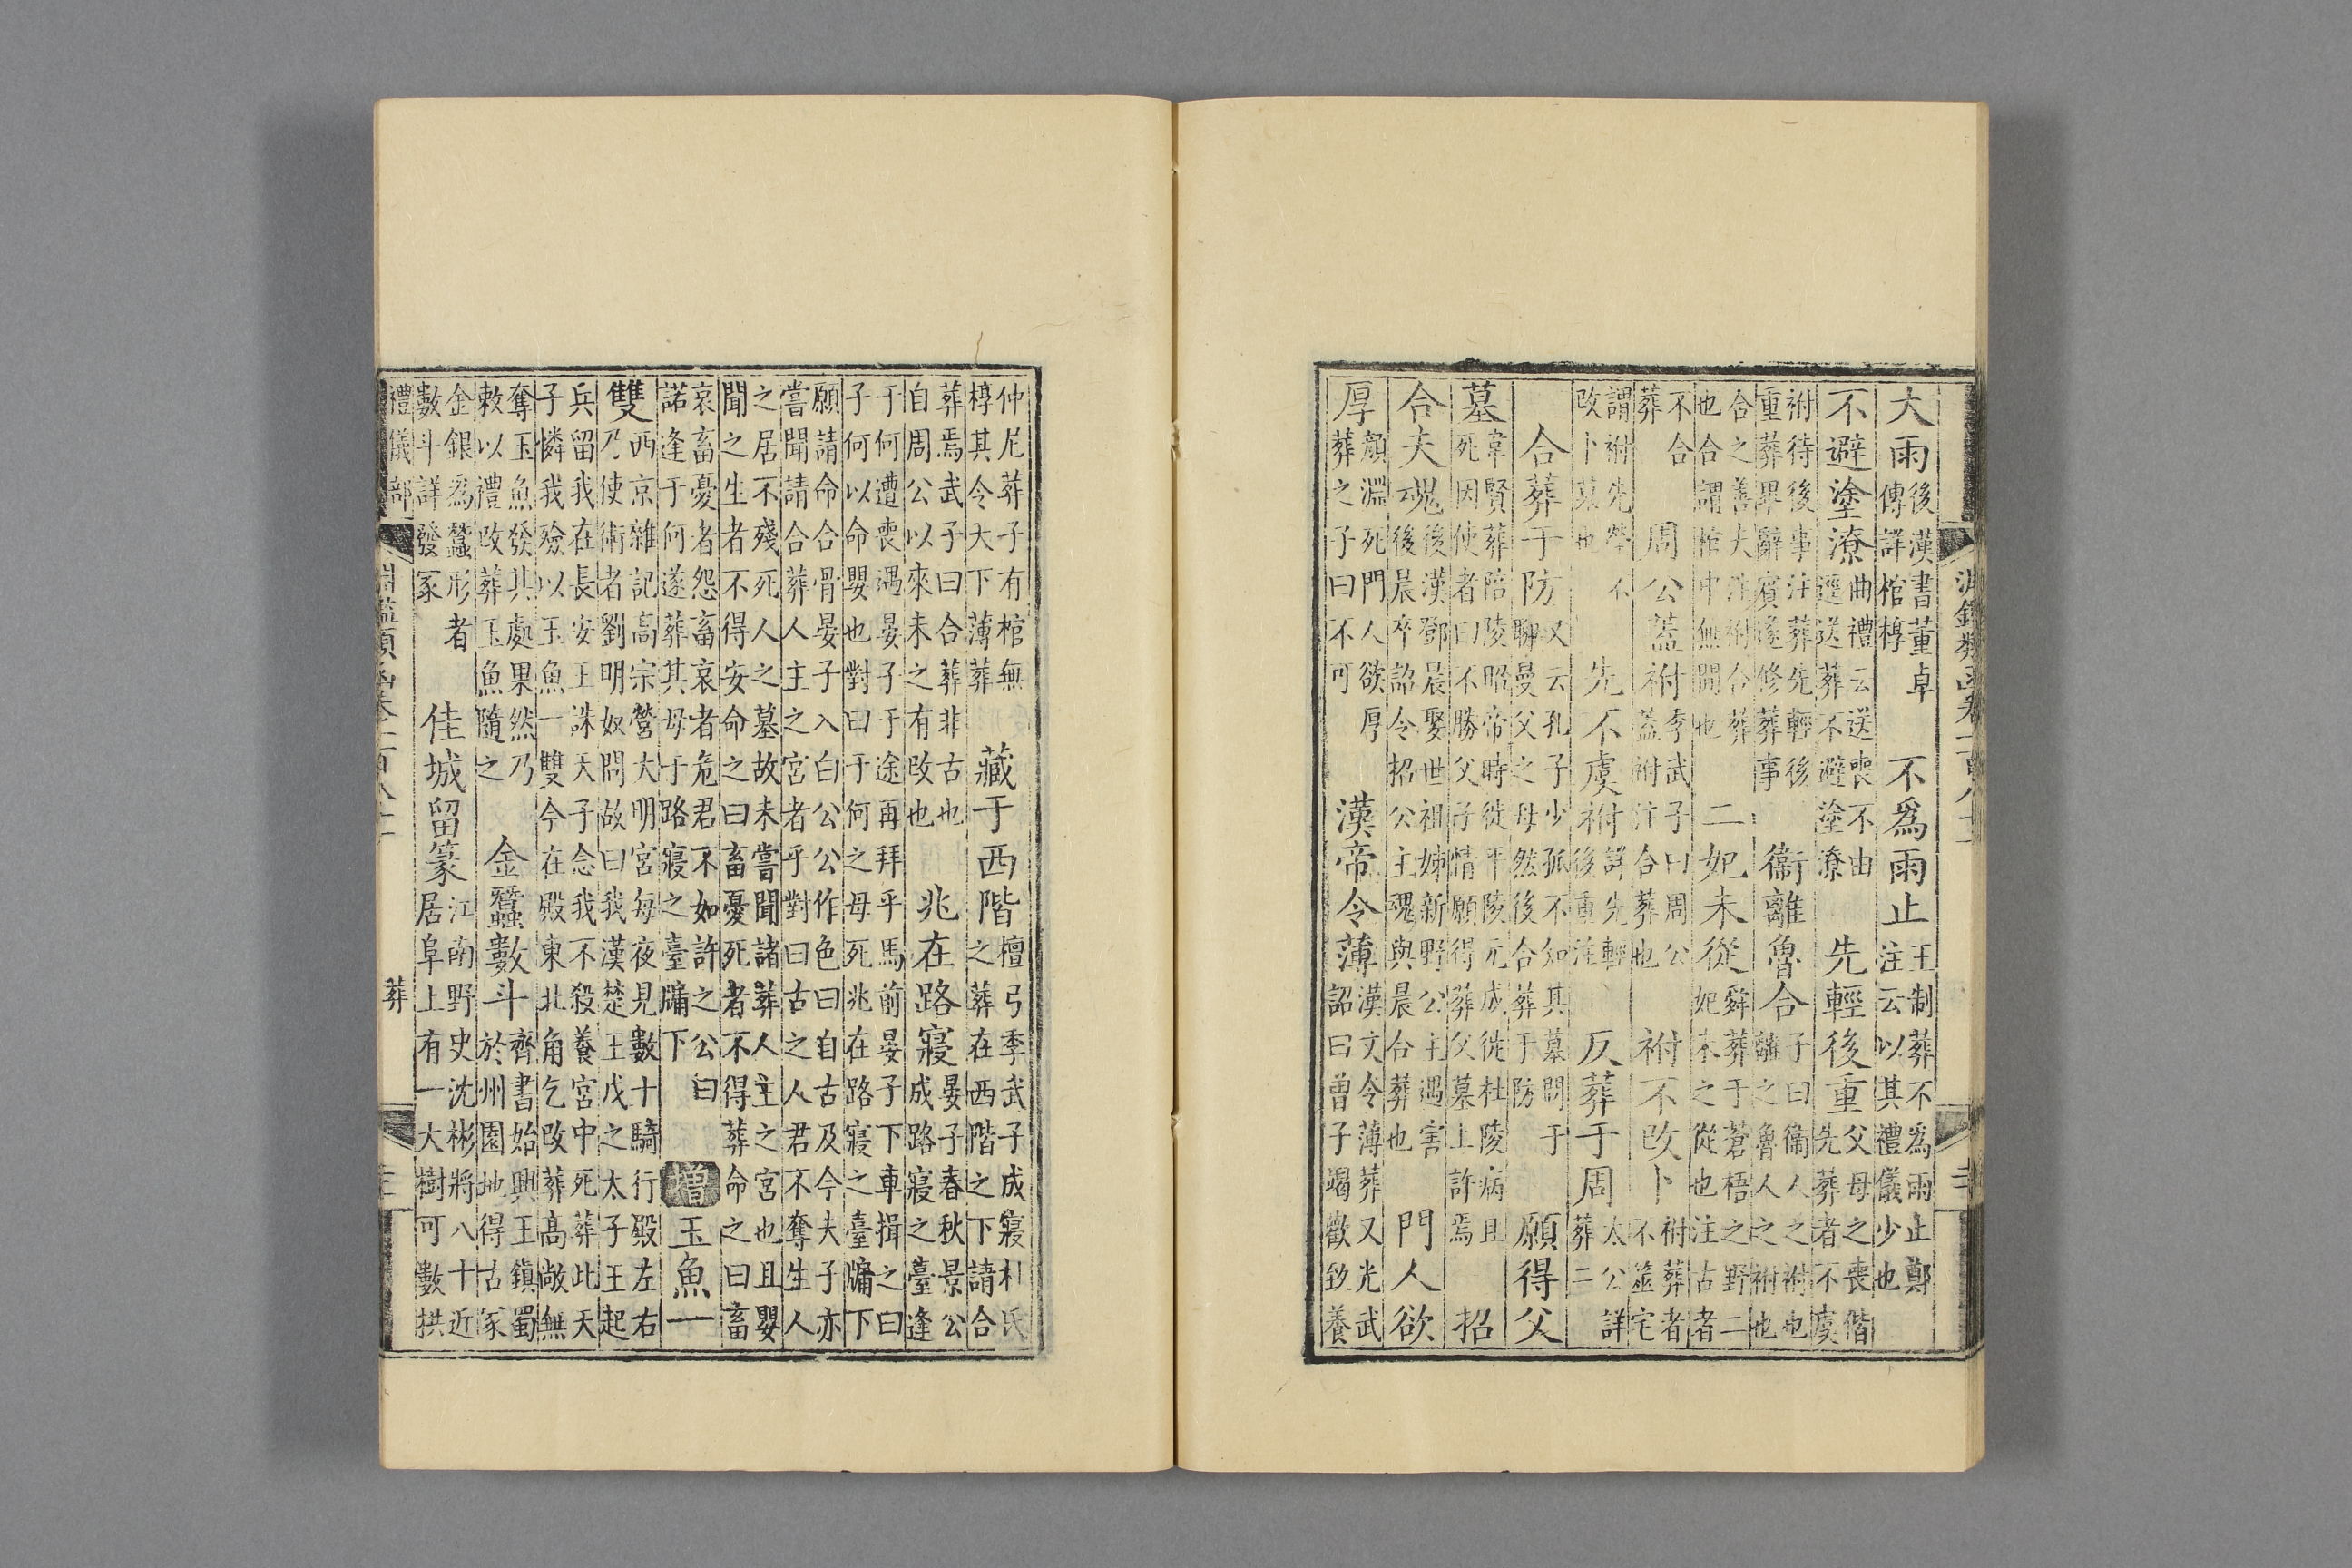 淵鑑類函卷一百八十一
大雨後漢書董卓傳詳棺椁　不爲雨止王制葬不爲雨止鄭注云以其禮儀少也
不避塗潦曲禮云送喪不由逕送葬不避塗潦　先輕後重父母之喪偕先葬者不虞
祔待後事注葬先輕後重葬畢辭賓遂修葬事　衞離魯合子曰衞人之祔也離之魯人之祔也
合之善夫注祔合葬也合謂棺中無間也　二妃未從舜葬于蒼梧之野二妃未之從也注古者
不合葬　周公蓋祔季武子曰周公蓋祔注合葬也　祔不改卜祔葬者不筮宅
謂祔先塋不改卜墓也　先不虞祔詳先輕後重注　反葬于周太公詳葬二
合葬于防又云孔子少孤不知其墓問于聊曼父之母然後合葬于防　願得父
墓韋賢葬陪陵昭帝時徙平陵元成徙杜陵病且死因使者曰不勝父子情願得葬父墓上許焉　招
合夫魂後漢鄧晨娶世祖姊新野公主遇害後晨卒詔令招公主魂與晨合葬也　門人欲
厚顏淵死門人欲厚葬之子曰不可　漢帝令薄漢文令薄葬又光武詔曰曾子竭歡致養
仲尼葬子有棺無椁其令大下薄葬　藏于西階檀弓季武子成寢杜氏之葬在西階之下請合
葬焉武子曰合葬非古也自周公以來未之有改也　兆在路寢晏子春秋景公成路寢之臺逢
于何遭喪遇晏子于途再拜乎馬前晏子下車揖之曰子何以命嬰也對曰于何之母死兆在路寢之臺牖下
願請命合骨晏子入白公公作色曰自古及今夫子亦嘗聞請合葬人主之宮者乎對曰古之人君不奪生人
之居不殘死人之墓故未嘗聞諸葬人主之宮也且嬰聞之生者不得安命之曰畜憂死者不得葬命之曰畜
哀畜憂者怨畜哀者危君不如許之公曰諾逢于何遂葬其母于路寢之臺牖下　增　玉魚一
雙西京雜記高宗營大明宮每夜見數十騎行殿左右乃使術者劉明奴問故曰我漢楚王戊之太子王起
兵留我在長安王誅天子念我不殺養宮中死葬此天子憐我殮以玉魚一雙今在殿東北角乞改葬高敞無
奪玉魚發其處果然乃敕以禮改葬玉魚隨之　金蠶數斗齊書始興王鎮蜀於州園地得古冢
金銀爲蠶形者數斗詳發冢　佳城留篆江南野史沈彬將八十近居阜上有一大樹可數拱
禮儀部　葬